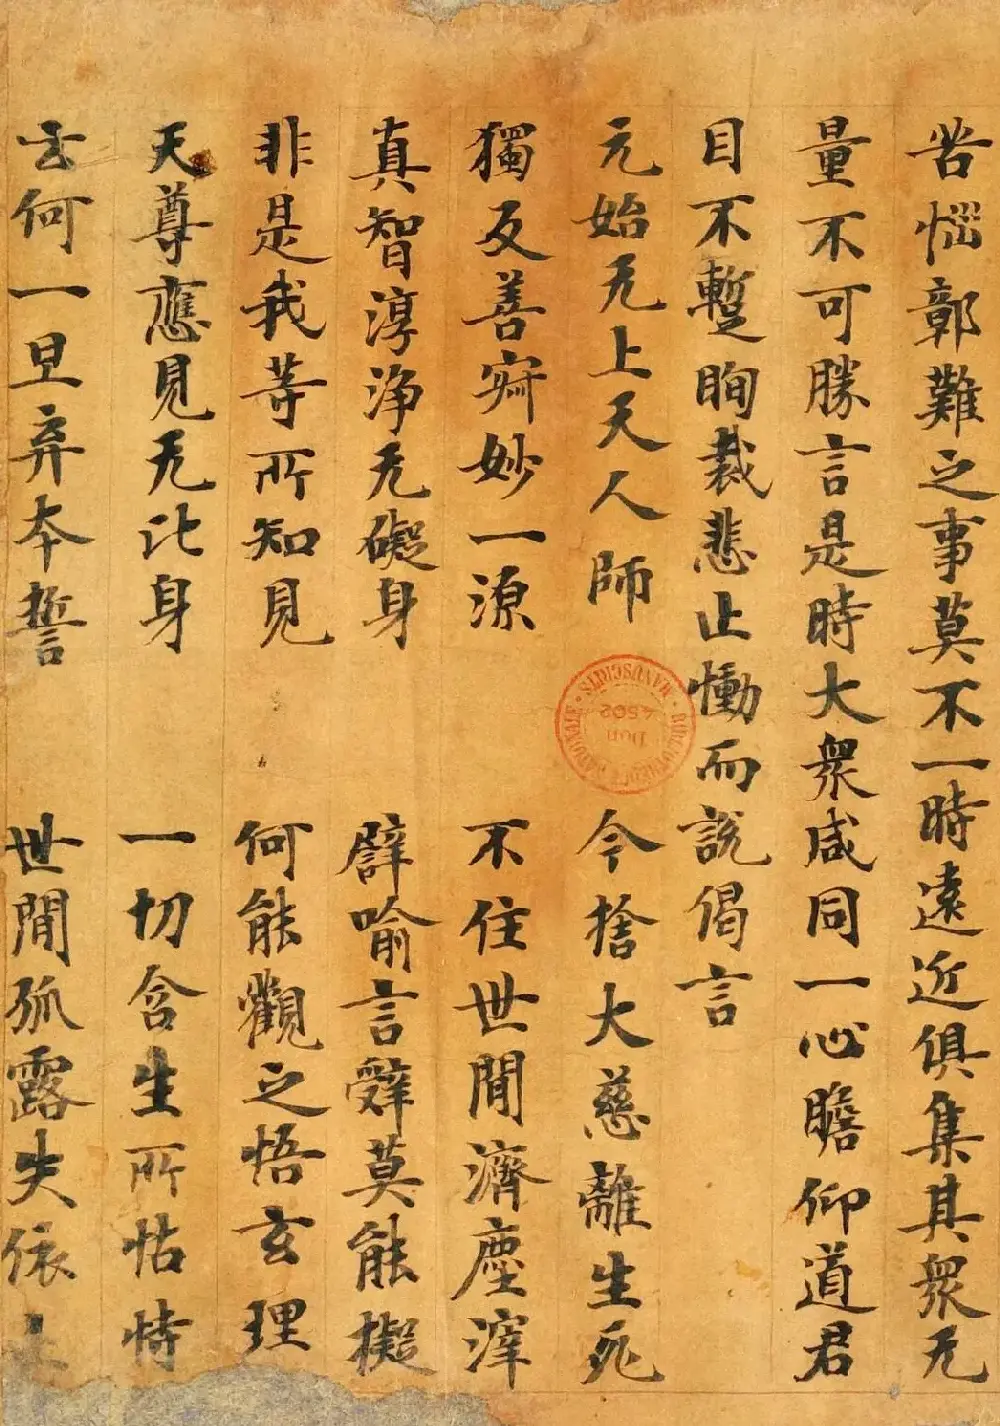 苦惱鄣難之事莫不一時遠近俱集其衆无
量不可勝言是時大衆咸同一心瞻仰道君
目不蹔眴裁悲止慟而說偈言
元始无上天人師 今捨大慈離生死
獨反善寂妙一源 不住世間濟塵滓
真智淳淨无礙身 譬喻言辭莫能擬
非是我等所知見 何能觀之悟玄理
天尊應見无比身 一切含生所怙恃
云何一旦弃本誓 世間孤露失依
BIBLIOTHÈQUE NATIONALE MANUSCRITS
Don 4502